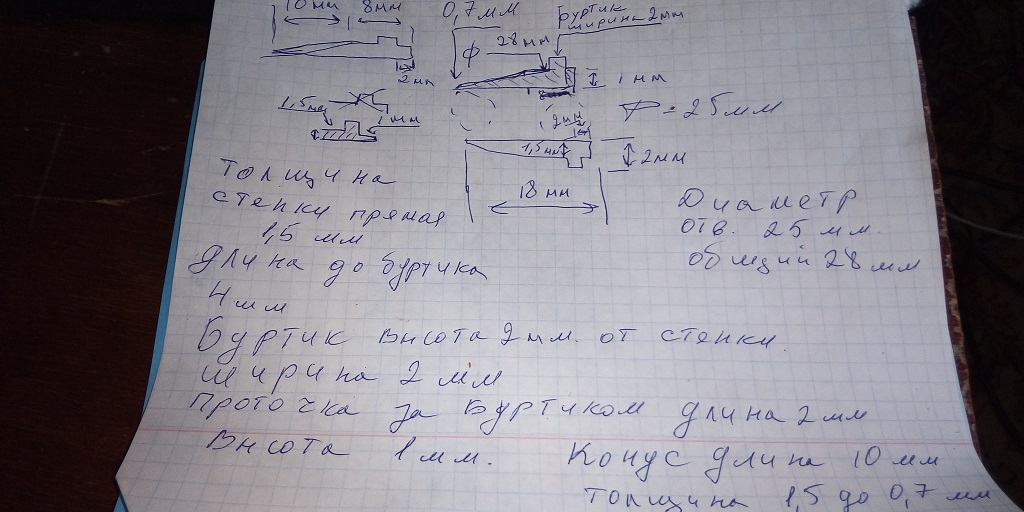 10 мм 8мм 0,7мм Буртик
ширина 2мм
ф 28 мм
2мм
1 мм
1,5мм
1 мм
ф = 25мм
2мм
1,5мм
2мм
18 мм
Толщина
стенки прямая
1,5 мм
Длина до буртика
4мм
Диаметр
отв. 25 мм.
общий 28 мм
Буртик высота 2мм. от стенки.
ширина 2 мм
Проточка за буртиком длина 2мм
Высота 1мм.
Конус длина 10 мм
толщина 1,5 до 0,7 мм